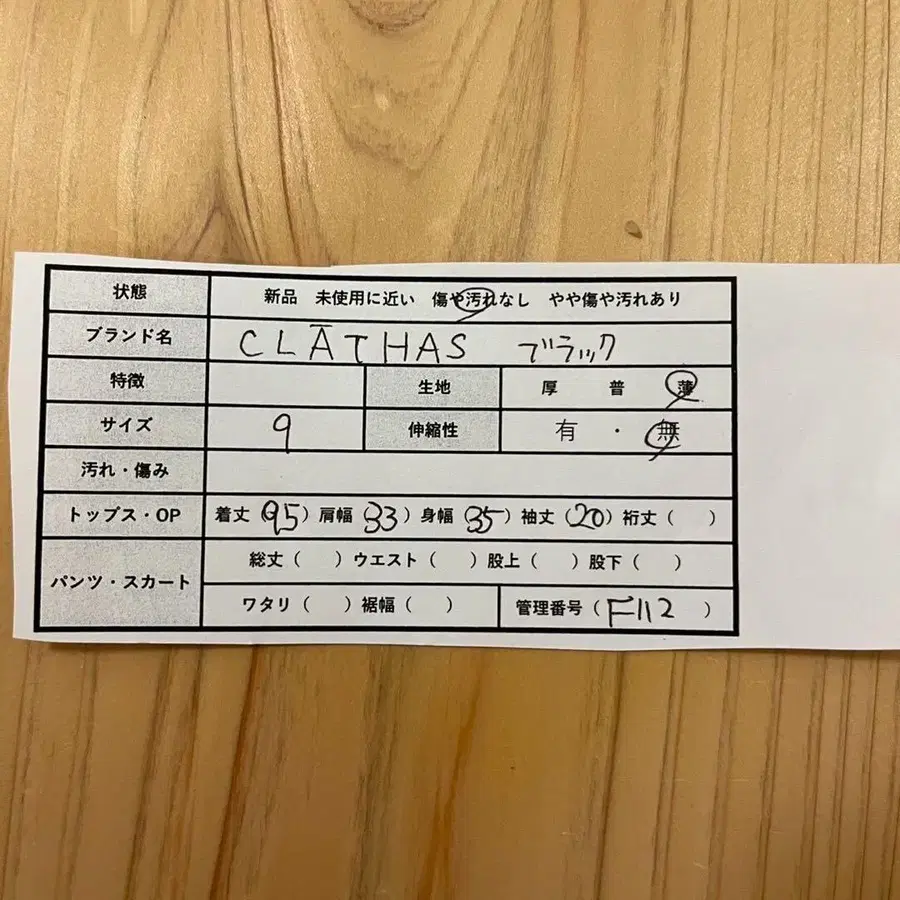 状態 新品 未使用に近い 傷や汚れなし やや傷や汚れあり
ブランド名 CLĀTHAS ブラック
特徴 生地 厚 普 薄
サイズ 9 伸縮性 有 ・ 無
汚れ・傷み
トップス・OP 着丈(95) 肩幅(33) 身幅(35) 袖丈(20) 裄丈( )
パンツ・スカート 総丈( ) ウエスト( ) 股上( ) 股下( )
ワタリ( ) 裾幅( ) 管理番号(F112 )